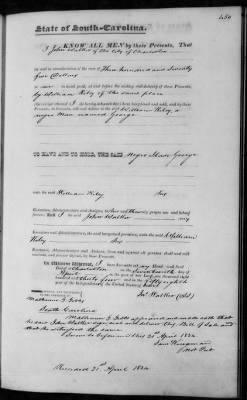 State of South-Carolina.
KNOW ALL MEN by these Presents, That
I John Walker of the City of Charleston
for and in consideration of the sum of Three hundred and Twenty
five Dollars
to me in hand paid, at and before the sealing and delivery of these Presents,
by William Riley of the same place
the receipt whereof I do hereby acknowledge, have bargained and sold, and by these
Presents, do bargain, sell and deliver to the said William Riley, a
negro Man named George
TO HAVE AND TO HOLD, THE SAID Negro Man George
unto the said William Riley his
Executors, Administrators and Assigns, to his and their only proper use and behoof
forever. And I the said John Walker my
Executors, Administrators, the said bargained premises, unto the said William
Riley his
Executors, Administrators and Assigns, from and against all persons shall and will
warrant, and forever defend, by these Presents.
In Witness Whereof, I have set my Hand and
Seal
Dated at Charleston on the Seventeenth day of
April in the year of our Lord one thousand eight
hundred and thirty four and in the fifty eighth
year of the Independence of the United States of America
Jno. Walker (LS)
South Carolina
appeared and made oath that
he saw John Walker sign, seal and deliver this Bill of Sale and
that he witnessed the same
Sworn to before me this 21st April 1834
Recorded 21st April 1834